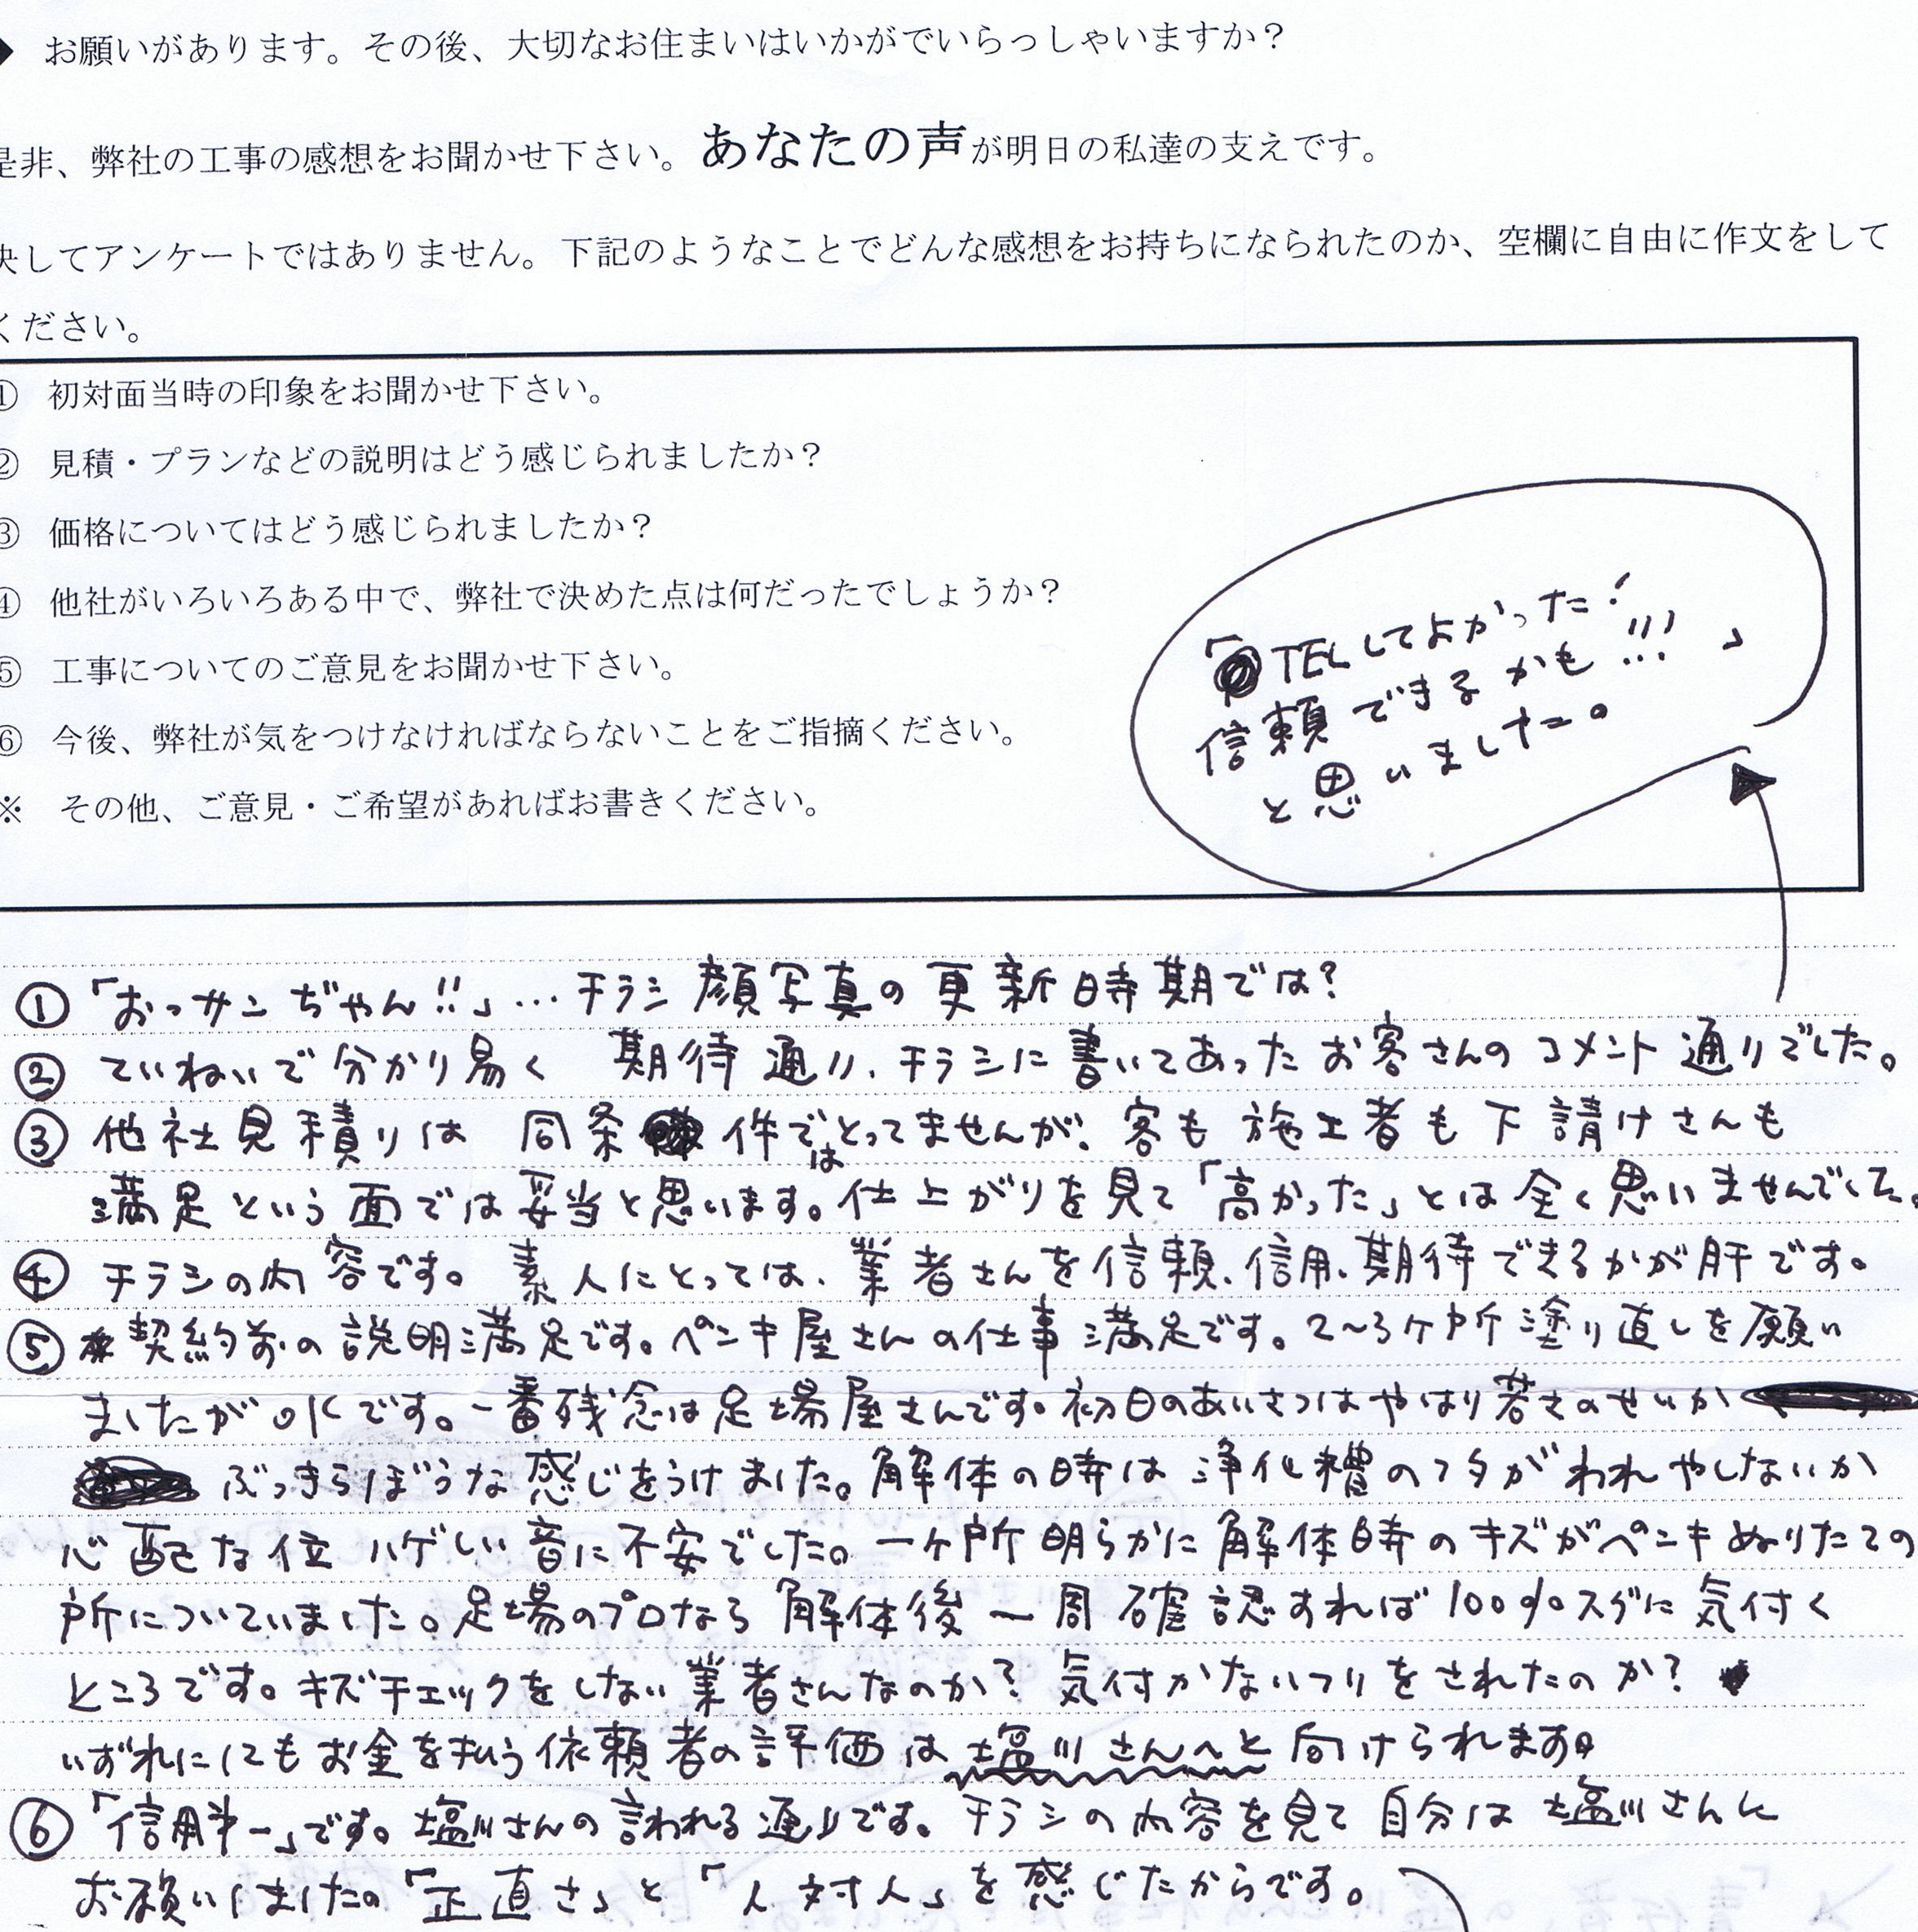 ◆ お願いがあります。その後、大切なお住まいはいかがでいらっしゃいますか？
是非、弊社の工事の感想をお聞かせ下さい。あなたの声が明日の私達の支えです。
決してアンケートではありません。下記のようなことでどんな感想をお持ちになられたのか、空欄に自由に作文をして
ください。
① 初対面当時の印象をお聞かせ下さい。
② 見積・プランなどの説明はどう感じられましたか？
③ 価格についてはどう感じられましたか？
④ 他社がいろいろある中で、弊社で決めた点は何だったでしょうか？
⑤ 工事についてのご意見をお聞かせ下さい。
⑥ 今後、弊社が気をつけなければならないことをご指摘ください。
※ その他、ご意見・ご希望があればお書きください。
「TELしてよかった！
信頼できるかも!!!」
と思いました。
① 「おっサンぢゃん!!」…チラシ顔写真の更新時期では？
② ていねいで分かり易く 期待通り、チラシに書いてあったお客さんのコメント通りでした。
③ 他社見積りは 同条件ではとってませんが、客も施工者も下請けさんも
満足という面では妥当と思います。仕上がりを見て「高かった」とは全く思いませんでした。
④ チラシの内容です。素人にとっては、業者さんを信頼、信用、期待できるかが肝です。
⑤ 契約前の説明満足です。ペンキ屋さんの仕事満足です。2〜3ヶ所塗り直しを願い
ましたがOKです。一番残念は足場屋さんです。初日のあいさつはやはり若さのせいか
ぶっきらぼうな感じをうけました。解体の時は浄化槽のフタがわれやしないか
心配な位ハゲしい音に不安でした。一ヶ所明らかに解体時のキズがペンキぬりたての
所についていました。足場のプロなら解体後一周確認すれば100%スグに気付く
ところです。キズチェックをしない業者さんなのか？気付かないフリをされたのか？
いずれにしてもお金を払う依頼者の評価は塩川さんへと向けられます。
⑥ 「信用第一」です。塩川さんの言われる通りです。チラシの内容を見て自分は塩川さんに
お願いしました。「正直さ」と「人対人」を感じたからです。